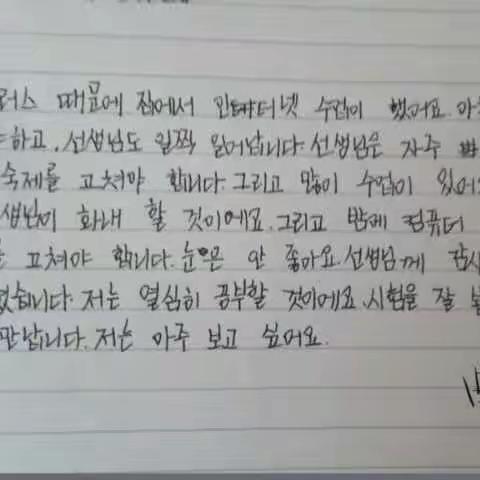 러스 때문에 집에서 인터넷 수업이 했어요. 아
하고, 선생님도 일찍 일어납니다. 선생님은 자주
숙제를 고쳐야 합니다. 그리고 많이 수업이 있어
생님이 화내 할 것이에요. 그리고 밤에 컴퓨터
고쳐야 합니다. 눈은 안 좋아요. 선생님께 감사
었습니다. 저는 열심히 공부할 것이에요. 시험을 잘
만납니다. 저는 아주 보고 싶어요.